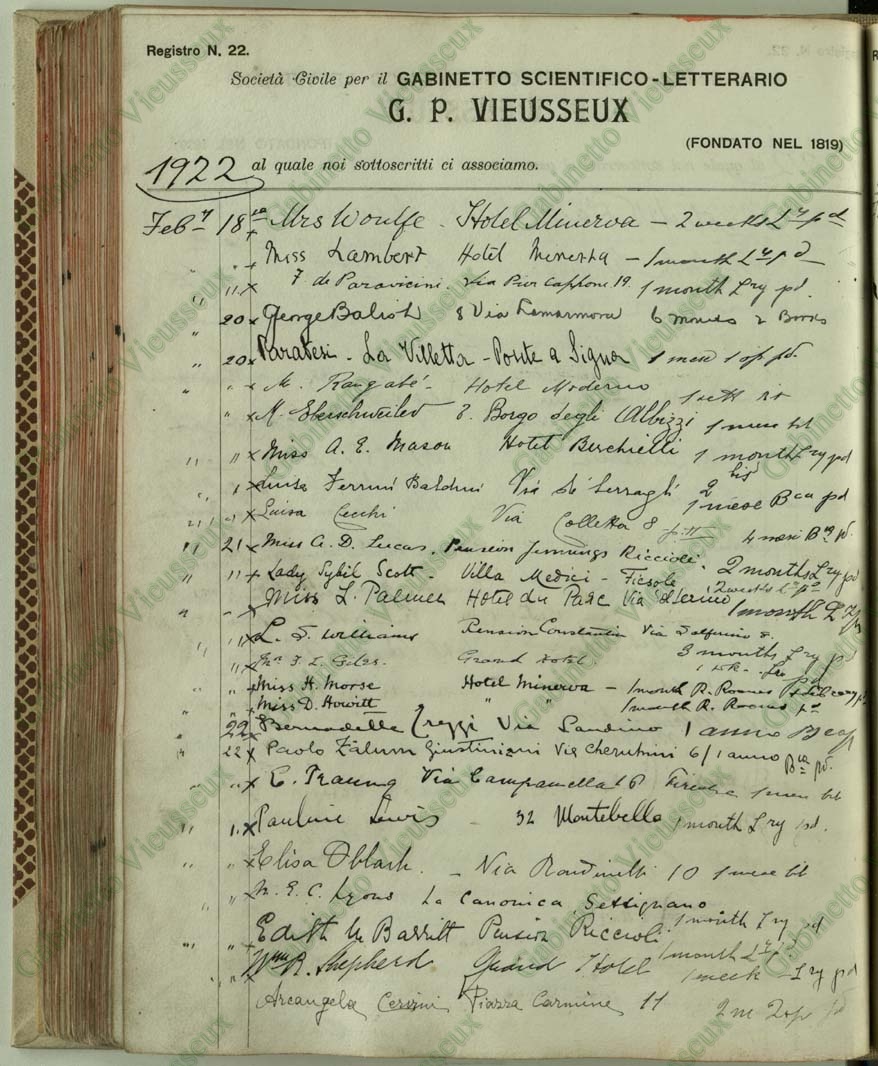 Registro N. 22.
Società Civile per il GABINETTO SCIENTIFICO-LETTERARIO
G. P. VIEUSSEUX
(FONDATO NEL 1819)
1922 al quale noi sottoscritti ci associamo.
Feby 18 Mrs Woulfe - Hotel Minerva - 2 weeks Ly pd
" Miss Lambert Hotel Minerva - 1 month Ly pd
" 11 de Paravicini. Via Pier Capponi 19. 1 month Lry pd.
" 20 George Balish 8 Via Lamarmora 6 2 Books
" 20 Paravesi - La Villetta - Ponte a Signa 1 mese pd.
" " M. Rangabé - Hotel Moderno
" M. Eberschweiler 8. Borgo degli Albizzi 1 mese
" " Miss A. E. Mason Hotel Berchielli 1 month Lry pd
" " Luisa Ferrini Baldini Via de' Serragli 2
" " Luisa Cecchi Via Colletta 8 1 mese Bca pd
4 mesi Bca pd.
" 21 Miss A. D. Lucas. Pension Jennings Riccioli. 2 months Lry pd
" 11 Lady Sybil Scott - Villa Medici - Fiesole 2 weeks Ly pd
" " Miss L. Palmer Hotel du Parc Via 1 month
" L. S. Williams Pension Constantin Via Solferino 8. 3 months Lry pd
" Grand Hotel. 1 wk. Lry pd
" " Miss H. Morse Hotel Minerva - 1 month R. Rooms
" " Miss D. Howitt " " 1 month R. Rooms pd
" 22 Bernadette Via 1 anno Bca
" 22 Paolo Giustiniani Via Cherubini 6/1 anno Bca pd.
" " C. Traung Via Campanella 16 Firenze 1 mese
" 11 Pauline Lewis - 32 Montebello 1 month Lry pd.
" " Elisa Oblath. - Via Rondinelli 10 1 mese
" M. E. C. Lyons La Canonica Settignano
" " Edith M Barritt Pension Riccioli 1 month Lry pd
1 month Ly pd
" " Wm R. Shepherd Grand Hotel 1 week - Lry pd
Arcangela Piazza Carmine 11 2 m 2 op pd